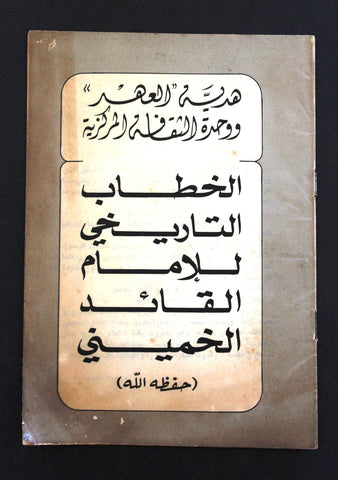 هدية "العهد"
ووحدة الثقافة المركزية
الخطاب
التاريخي
للإمام
القائد
الخميني
(حفظه الله)